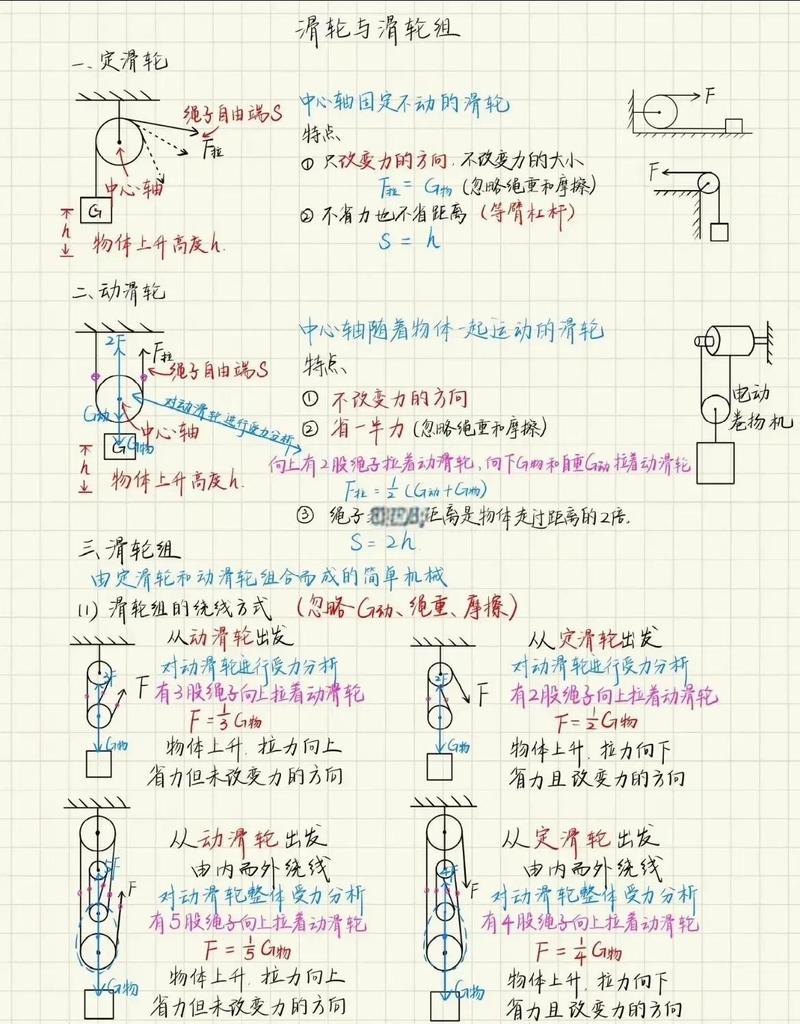 滑轮与滑轮组
一、定滑轮
绳子自由端S
F拉
中心轴
G
h
物体上升高度h.
中心轴固定不动的滑轮
特点
① 只改变力的方向.不改变力的大小
F拉 = G物 (忽略绳重和摩擦)
② 不省力也不省距离 (等臂杠杆)
S = h
F
F
二、动滑轮
2F
F拉
绳子自由端S
G动
对动滑轮进行受力分析
中心轴
G
G物
h
物体上升高度h.
中心轴随着物体一起运动的滑轮
特点
① 不改变力的方向
② 省一半力 (忽略绳重和摩擦)
向上有2股绳子拉着动滑轮,向下G物和自重G动拉着动滑轮
F拉 = 1/2 (G动+G物)
③ 绳子 距离是物体走过距离的2倍.
S = 2h
电动
卷扬机
三.滑轮组
由定滑轮和动滑轮组合而成的简单机械
(1) 滑轮组的绕线方式 (忽略G动、绳重、摩擦)
从动滑轮出发
对动滑轮进行受力分析
有3股绳子向上拉着动滑轮
F = 1/3 G物
物体上升.拉力向上
省力但未改变力的方向
3F
F
G物
从定滑轮出发
对动滑轮进行受力分析
有2股绳子向上拉着动滑轮
F = 1/2 G物
物体上升.拉力向下
省力且改变力的方向
2F
F
G物
从动滑轮出发
由内而外绕线
对动滑轮整体受力分析
有5股绳子向上拉着动滑轮
F = 1/5 G物
物体上升.拉力向上
省力但未改变力的方向
5F
F
G物
从定滑轮出发
由内而外绕线
对动滑轮整体受力分析
有4股绳子向上拉着动滑轮
F = 1/4 G物
物体上升.拉力向下
省力且改变力的方向
4F
F
G物